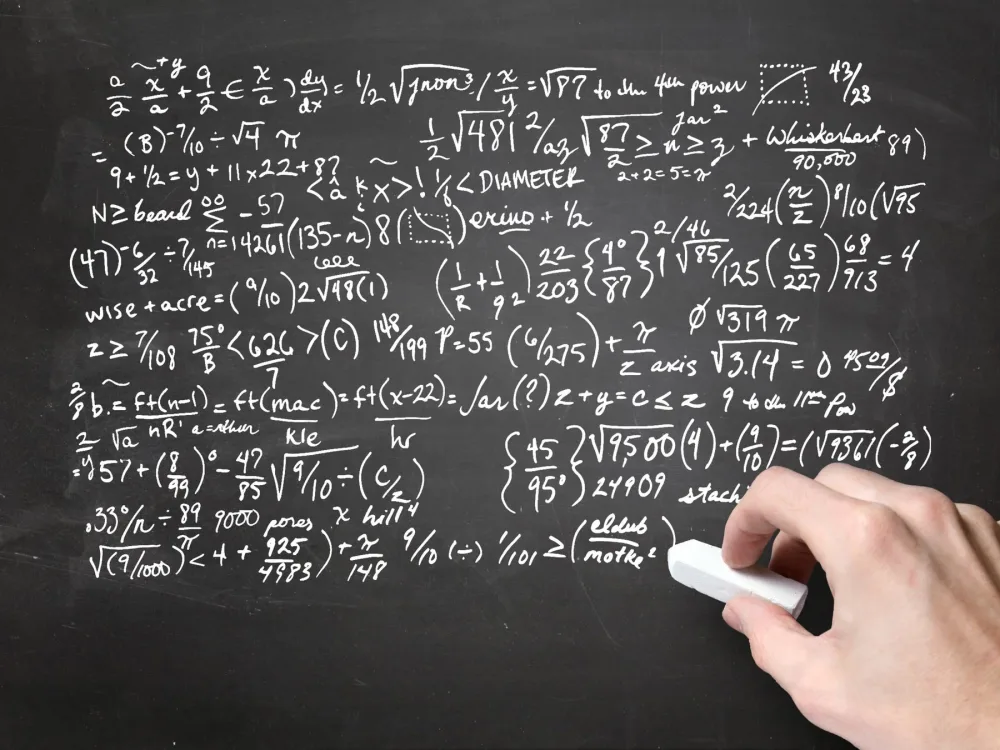 a/2 ~ x/a +y + 9/2 € x/a ) dy/dx = 1/2 √jnon³ / x/y = √87 to the 4th power 43/23
= (B)⁻⁷/10 ÷ √4 π 1/2 √481 2/az √87/2 ≥ n ≥ z jar² + Whiskerbert/90,000 89)
9 + 1/2 = y + 11 x 22 + 8? 2+2=5=π
< â k x > ! 1/8 < DIAMETER
N ≥ beard ∞ Σ n=14261 -57 (135-n) 8 ( ) erino + 1/2 2/224 (n/z) 8/10 (√95
(47)⁻⁶/32 ÷ 7/145 (1/R + 1/9 2) 22/203 {4°/87} 9 2/46 √85/125 (65/227) 68/913 = 4
wise + acre = (9/10) 2 √48(1)
z ≥ 7/108 75°/B < 626/7 > (C) 148/199 P = 55 (6/275) + π/z axis Ø √319 π √3.14 = 0 4502/$
2/8 b. = ft(n-1)/nR' = ft(mac)/kle = ft(x-22)/hr = /ar(?) z + y = c ≤ z 9 to the 11th pow
2/y √a a =
= 57 + (8/99)° - 47/85 √9/10 ÷ (C/z) {45/95°} √9,500 (4) + (9/10) = (√9361 (-2/8)
24909 stach
.33°/n ÷ 89/π 9000 pores x hill 4
√(9/1000) < 4 + 925/4983 ) + π/148 9/10 (÷) 1/101 ≥ (eldub/motke²)